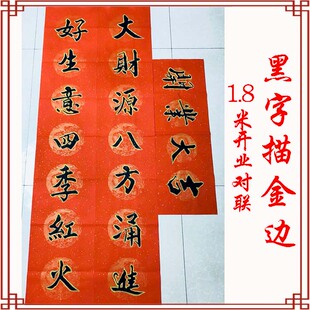 好生意四季紅火
大財源八方涌進
開業大吉
1.8米开业对联
黑字描金边